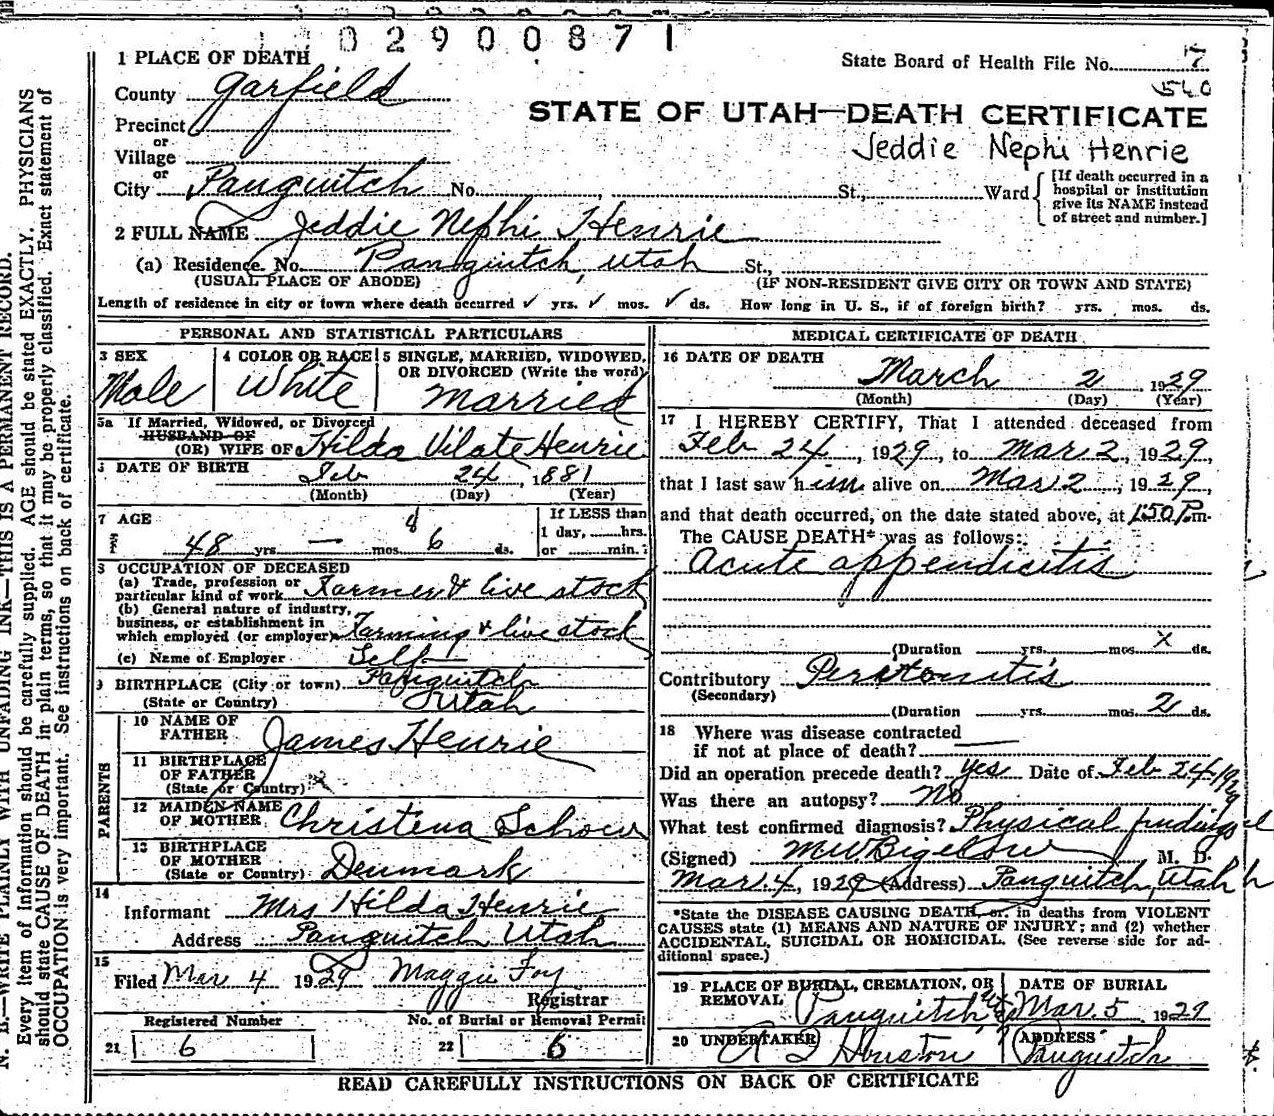 0 2 9 0 0 8 7 1
1 PLACE OF DEATH
State Board of Health File No. 7
560
County Garfield
STATE OF UTAH—DEATH CERTIFICATE
Precinct
or
Jeddie Nephi Henrie
Village
or
City Panguitch No. St., Ward
[If death occurred in a hospital or institution give its NAME instead of street and number.]
2 FULL NAME Jeddie Nephi Henrie
(a) Residence. No. Panguitch, Utah St.,
(USUAL PLACE OF ABODE) (IF NON-RESIDENT GIVE CITY OR TOWN AND STATE)
Length of residence in city or town where death occurred ✓ yrs. ✓ mos. ✓ ds. How long in U. S., if of foreign birth? yrs. mos. ds.
PERSONAL AND STATISTICAL PARTICULARS
3 SEX
Male
4 COLOR OR RACE
White
5 SINGLE, MARRIED, WIDOWED,
OR DIVORCED (Write the word)
Married
5a If Married, Widowed, or Divorced
HUSBAND OF
(OR) WIFE OF Hilda Vilate Henrie
DATE OF BIRTH Feb 24, 1881
(Month) (Day) (Year)
7 AGE
48 yrs. — mos. 6 ds.
If LESS than
1 day, hrs.
or min.
OCCUPATION OF DECEASED
(a) Trade, profession or
particular kind of work Farmer & live stock
(b) General nature of industry,
business, or establishment in
which employed (or employer) Farming & live stock
(c) Name of Employer Self
9 BIRTHPLACE (City or town) Panguitch
(State or Country) Utah
PARENTS
10 NAME OF
FATHER James Henrie
11 BIRTHPLACE
OF FATHER
(State or Country)
12 MAIDEN NAME
OF MOTHER Christena Schow
13 BIRTHPLACE
OF MOTHER
(State or Country) Denmark
14
Informant Mrs Hilda Henrie
Address Panguitch Utah
15
Filed Mar 4 1929 Maggie Foy
Registrar
Registered Number No. of Burial or Removal Permit
21 6 22 6
MEDICAL CERTIFICATE OF DEATH
16 DATE OF DEATH
March 2 1929
(Month) (Day) (Year)
17 I HEREBY CERTIFY, That I attended deceased from
Feb 24, 1929, to Mar 2, 1929,
that I last saw him alive on Mar 2, 1929,
and that death occurred, on the date stated above, at 1:50 P.m.
The CAUSE DEATH* was as follows:
Acute appendicitis
(Duration yrs. mos. X ds.
Contributory Peritonitis
(Secondary)
(Duration yrs. mos. 2 ds.
18 Where was disease contracted
if not at place of death?
Did an operation precede death? yes Date of Feb 24-1929
Was there an autopsy? No
What test confirmed diagnosis? Physical findings
(Signed) M W Bigelow M. D.
Mar. 4, 1929 (Address) Panguitch, Utah
*State the DISEASE CAUSING DEATH, or, in deaths from VIOLENT
CAUSES state (1) MEANS AND NATURE OF INJURY; and (2) whether
ACCIDENTAL, SUICIDAL OR HOMICIDAL. (See reverse side for ad-
ditional space.)
19 PLACE OF BURIAL, CREMATION, OR
REMOVAL Panguitch Ut
DATE OF BURIAL
Mar. 5 1929
20 UNDERTAKER Houston
ADDRESS
Panguitch
READ CAREFULLY INSTRUCTIONS ON BACK OF CERTIFICATE
N. B.—WRITE PLAINLY WITH UNFADING INK—THIS IS A PERMANENT RECORD.
Every item of information should be carefully supplied. AGE should be stated EXACTLY. PHYSICIANS
should state CAUSE OF DEATH in plain terms, so that it may be properly classified. Exact statement of
OCCUPATION is very important. See instructions on back of certificate.